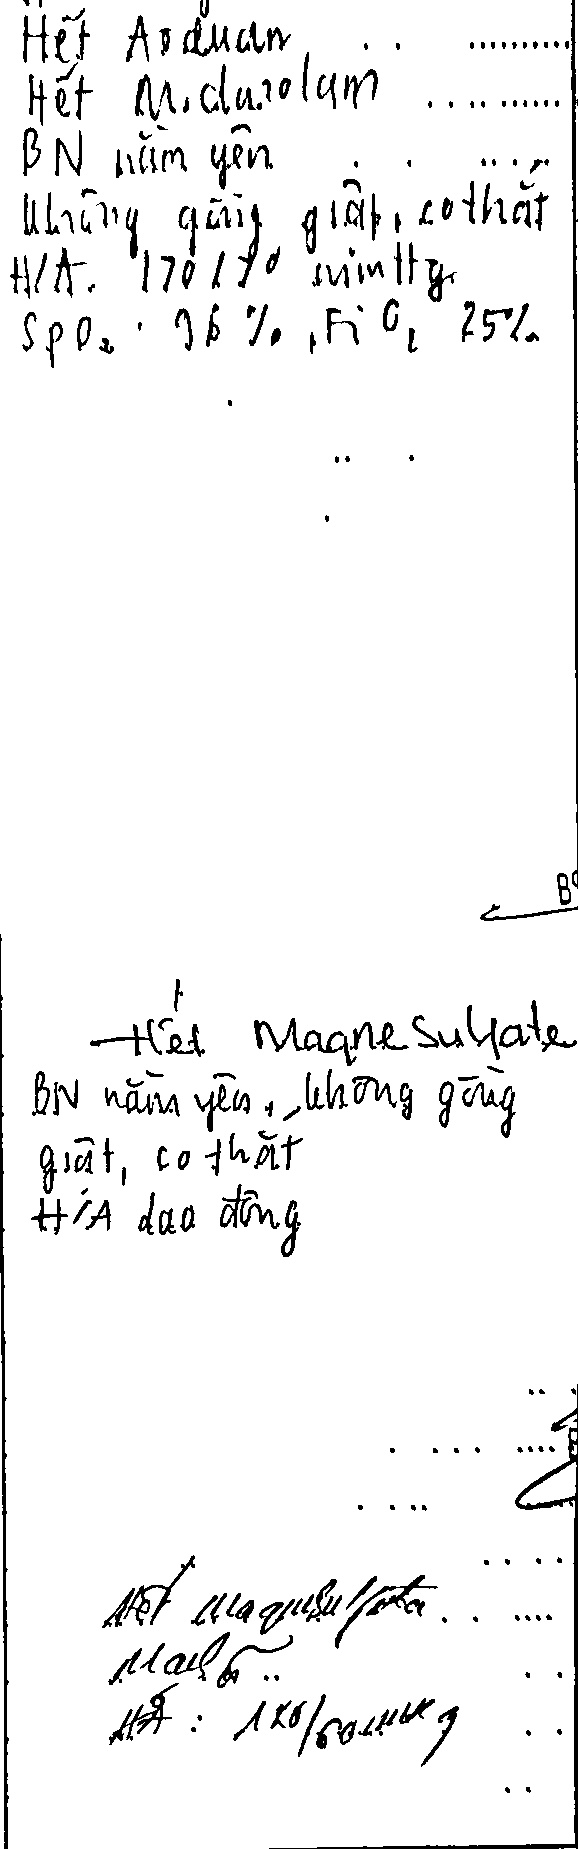 Hết Arduan
Hết Midazolam
BN nằm yên
không gồng giật, co thắt
H/A. 170/70 mmHg
SpO2: 96%, FiO2 25%
Hết MagneSulfate
BN nằm yên, không gồng
giật, co thắt
H/A dao động
Hết MagneSulfate
Mạch
HA: 120/60mmHg